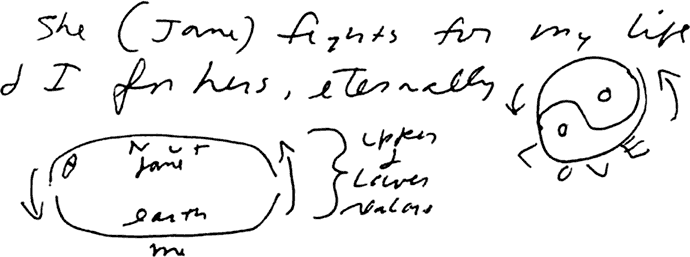 She (Jane) fights for my life
& I for hers, eternally
Nut
Jane
earth
me
upper
&
lower
realms
LOVE